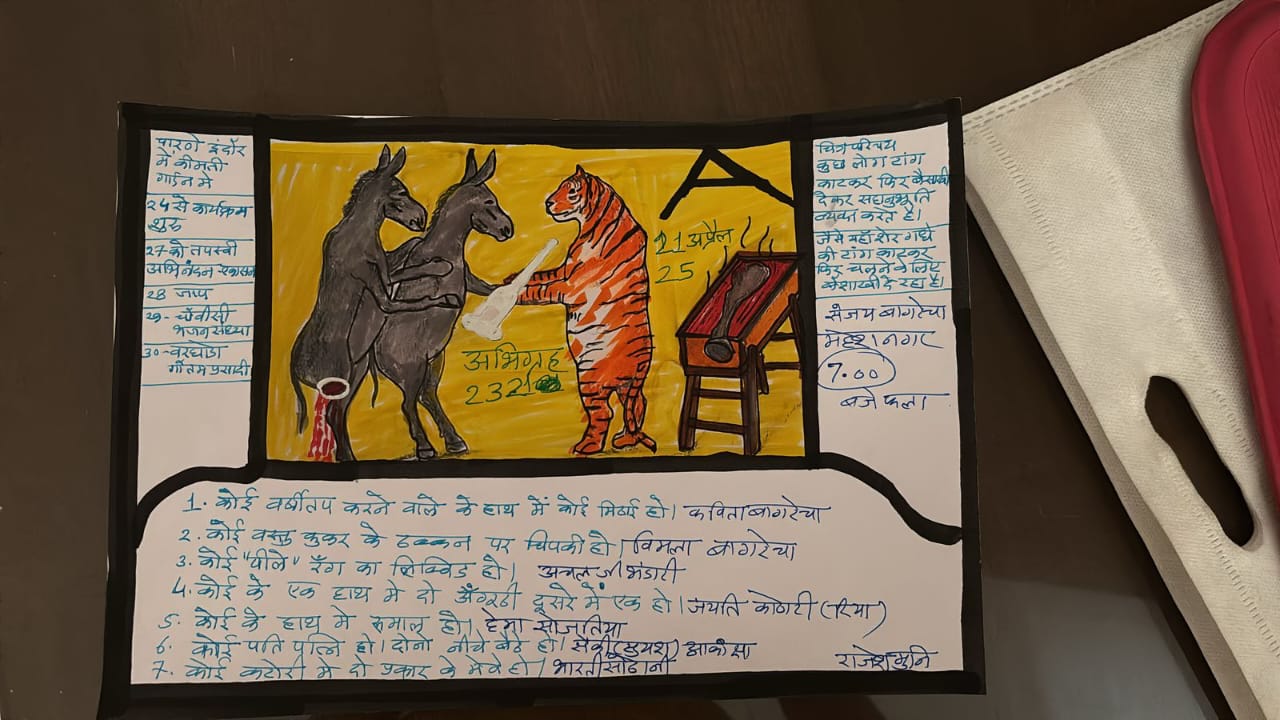 पारणे इंदौर
में कीमती
गार्डन में
24 से कार्यक्रम
शुरू
27 को तपस्वी
अभिनंदन
28 जाप
29- चौवीसी
भजन संध्या
30- वरघोडा
गौतम प्रसादी
21 अप्रैल
25
अभिग्रह
232
चित्र परिचय
कुछ लोग टांग
काटकर फिर वैसाखी
देकर सहानुभूति
व्यक्त करते है।
जैसे यहाँ शेर गधे
की टांग काटकर
फिर चलने के लिए
वैशाखी दे रहा है।
संजय बागरेचा
महेश नगर
7.00
बजे फला
1. कोई वर्षीतप करने वाले के हाथ में कोई मिठाई हो। कविता बागरेचा
2. कोई वस्तु कुकर के ढक्कन पर चिपकी हो। विमला बागरेचा
3. कोई "पीले" रँग का लिक्विड हो। जी भंडारी
4. कोई के एक हाथ मे दो अँगूठी दूसरे में एक हो। जयति कोठारी (रिया)
5. कोई के हाथ मे रुमाल हो। हेमा सोजतिया
6. कोई पति पत्नि हो। दोनो नीचे बैठे हो। (सुयश) आकांक्षा
7. कोई कटोरी मे दो प्रकार के मेवे हो। भारती
राजेश मुनि